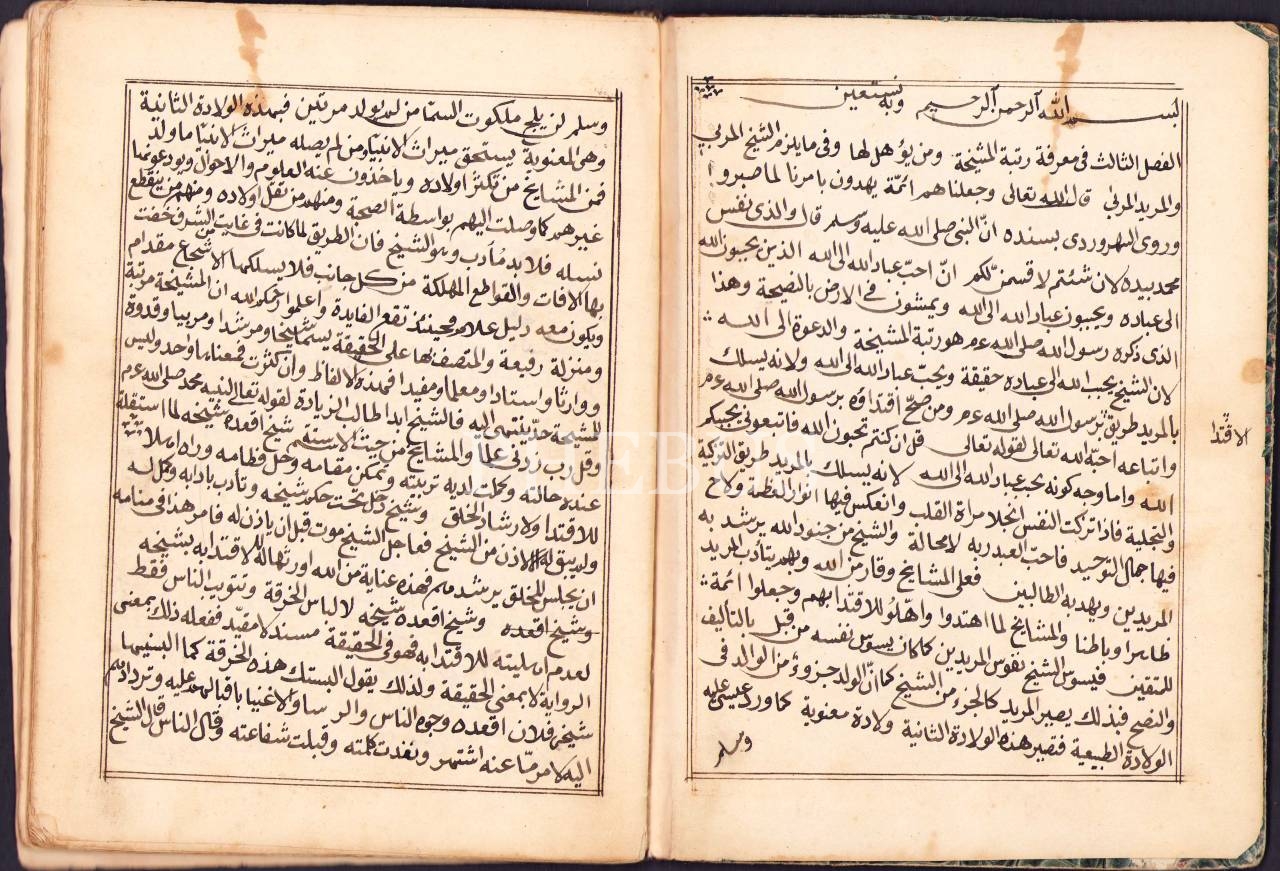 بسم الله الرحمن الرحيم وبه نستعين
الفصل الثالث في معرفة رتبة المشيخة ومن يؤهل لها وفي ما يلزم الشيخ المربي
والمريد المربى قال الله تعالى وجعلناهم ائمة يهدون بامرنا لما صبروا
وروى السهروردي بسنده ان النبي صلى الله عليه وسلم قال والذي نفس
محمد بيده لان شئتم لاقسمن لكم ان احب عباد الله الى الله الذين يحببون الله
الى عباده ويحببون عباد الله الى الله ويمشون في الارض بالنصيحة وهذا
الذي ذكره رسول الله صلى الله عم هو رتبة المشيخة والدعوة الى الله
لان الشيخ يحبب الله الى عباده حقيقة ويحبب عباد الله الى الله ولانه يسلك
بالمريد طريق رسول الله صلى الله عم ومن صح اقتداؤه برسول الله صلى الله عم
واتباعه احبه الله تعالى لقوله تعالى قل ان كنتم تحبون الله فاتبعوني يحببكم
الله واما وجه كونه يحبب عباد الله الى الله لانه يسلك بالمريد طريق التزكية
والتجلية فاذا تزكت النفس انجلا مراة القلب وانعكس فيها انوار العظمة ولاح
فيها جمال التوحيد فاحب العبد ربه لا محالة والشيخ من جنود الله يرشد به
المريدين ويهدي به الطالبين فعلى المشايخ وقار من الله وبهم يتأدب المريد
ظاهرا وباطنا والمشايخ لما اهتدوا واهلوا للاقتدا بهم وجعلوا ائمة
للمتقين فيسوس الشيخ نفوس المريدين كما كان يسوس نفسه من قبل بالتاليف
والنصح فبذلك يصير المريد كالجزء من الشيخ كما ان الولد جزوء من الوالد في
الولادة الطبيعية فتصير هذه الولادة الثانية ولادة معنوية كما ورد عن عيسى عليه
وسلم
الاقتدا
وسلم لن يلج ملكوت السما من لم يولد مرتين فبهذه الولادة الثانية
وهي المعنوية يستحق ميراث الانبيا ومن لم يصله ميراث الانبيا ما ولد
فمن المشايخ من تكثر اولاده وياخذون عنه العلوم والاحوال ويودعونها
غيرهم كما وصلت اليهم بواسطة الصحبة ومنهم من تقل اولاده ومنهم من ينقطع
نسله فلا بد من مأدب وهو الشيخ فان الطريق لما كانت في غايت الشرف خفت
بها الافات والقواطع المهلكة من كل جانب فلا يسلكها الا شجاع مقدام
ويكون معه دليل علام وحينئذ تقع الفايدة واعلموا رحمكم الله ان المشيخة مرتبة
ومنزلة رفيعة والمتصف بها على الحقيقة يسما شيخا ومرشدا ومربيا وقدوة
ووارثا واستادا ومعلما ومفيدا فهذه الالفاظ وان كثرت فمعناها واحد وليس
للشيخة حد ينتهي اليه فالشيخ ابدا طالب الزيادة لقوله تعالى لنبيه محمد صلى الله عم
وقل رب زدني علما والمشايخ من حيث الاستقسم شيخ اقعده شيخه لما استقلة
عنده حالته وكملت لديه تربيته وتمكن مقامه وحل فطامه وراه اهلا
للاقتدا ولارشاد الخلق وشيخ دخل تحت حكم شيخه وتأدب بادابه وكمل له
ولم يبق له الا الاذن من الشيخ فعاجل الشيخ موت قبل ان ياذن له فامر هذا في منامه
ان يجلس للخلق يرشدهم فهذه عناية من الله اورثها له للاقتدا به بشيخه
وشيخ اقعده وشيخ اقعده شيخه لالباس الخرقة وتتويب الناس فقط
لعدم اهليته للاقتدا به فهو في الحقيقة مسند لا مفيد ففعله ذلك بمعنى
الرواية لا بمعنى الحقيقة ولذلك يقول البستك هذه الخرقة كما البسنيها
شيخي فلان اقعده وجوه الناس والرسا والاغنيا باقبالهم عليه وتردادهم
اليه لامر ما عنه اشتهر ونفدت كلمته وقبلت شفاعته وقال الناس قال الشيخ